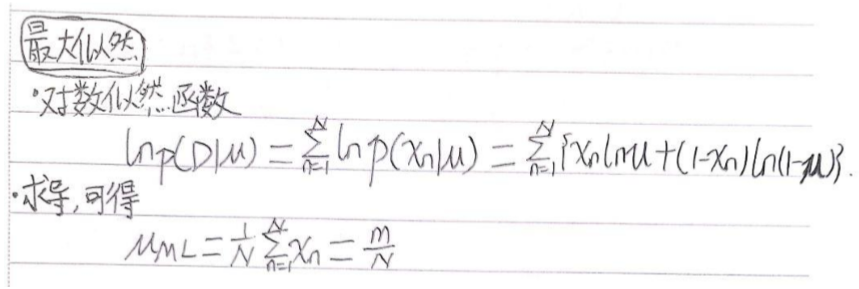 最大似然
·对数似然函数
ln p(D|μ) = ∑_{n=1}^{N} ln p(x_n|μ) = ∑_{n=1}^{N} {x_n ln μ + (1-x_n) ln(1-μ)}.
·求导,可得
μ_{ML} = \frac{1}{N} ∑_{n=1}^{N} x_n = \frac{m}{N}